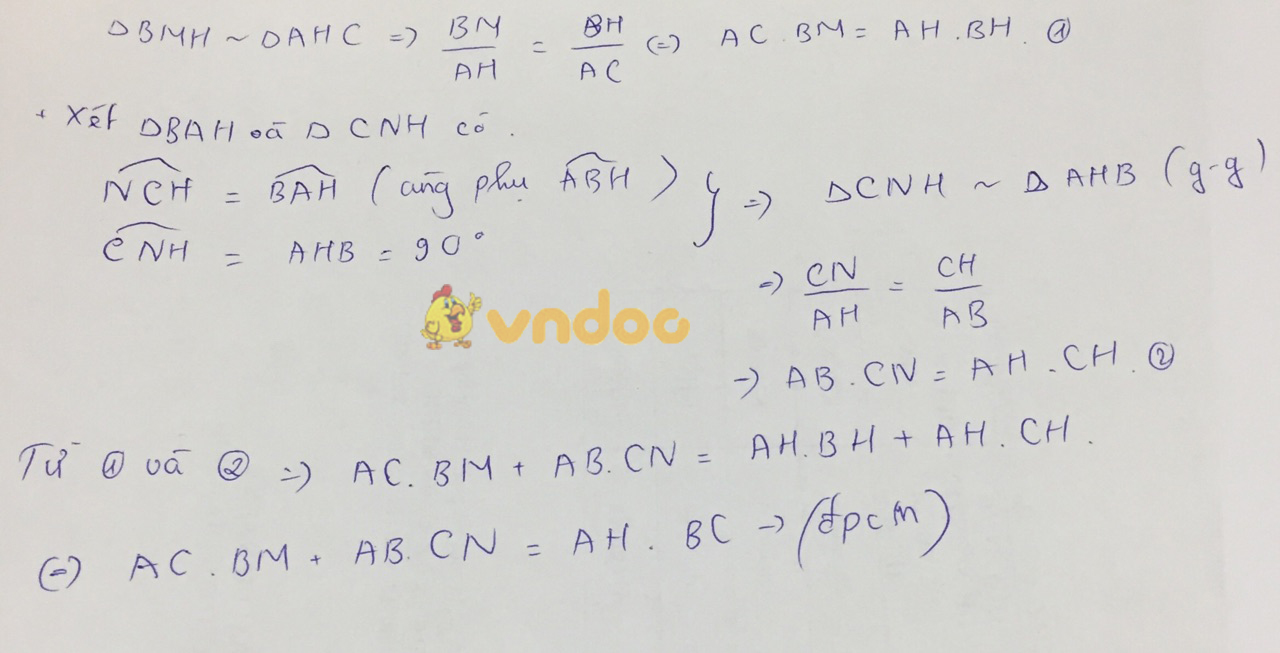 ΔBMH ~ ΔAHC => BM/AH = BH/AC (=) AC.BM = AH.BH. ①
+ Xét ΔBAH và Δ CNH có.
NCH = BAH (cùng phụ ABH) } => ΔCNH ~ Δ AHB (g-g)
CNH = AHB = 90°
=> CN/AH = CH/AB
vndoc
-> AB.CN = AH.CH. ②
Từ ① và ② => AC.BM + AB.CN = AH.BH + AH.CH.
(=) AC.BM + AB.CN = AH.BC -> (đpcm)